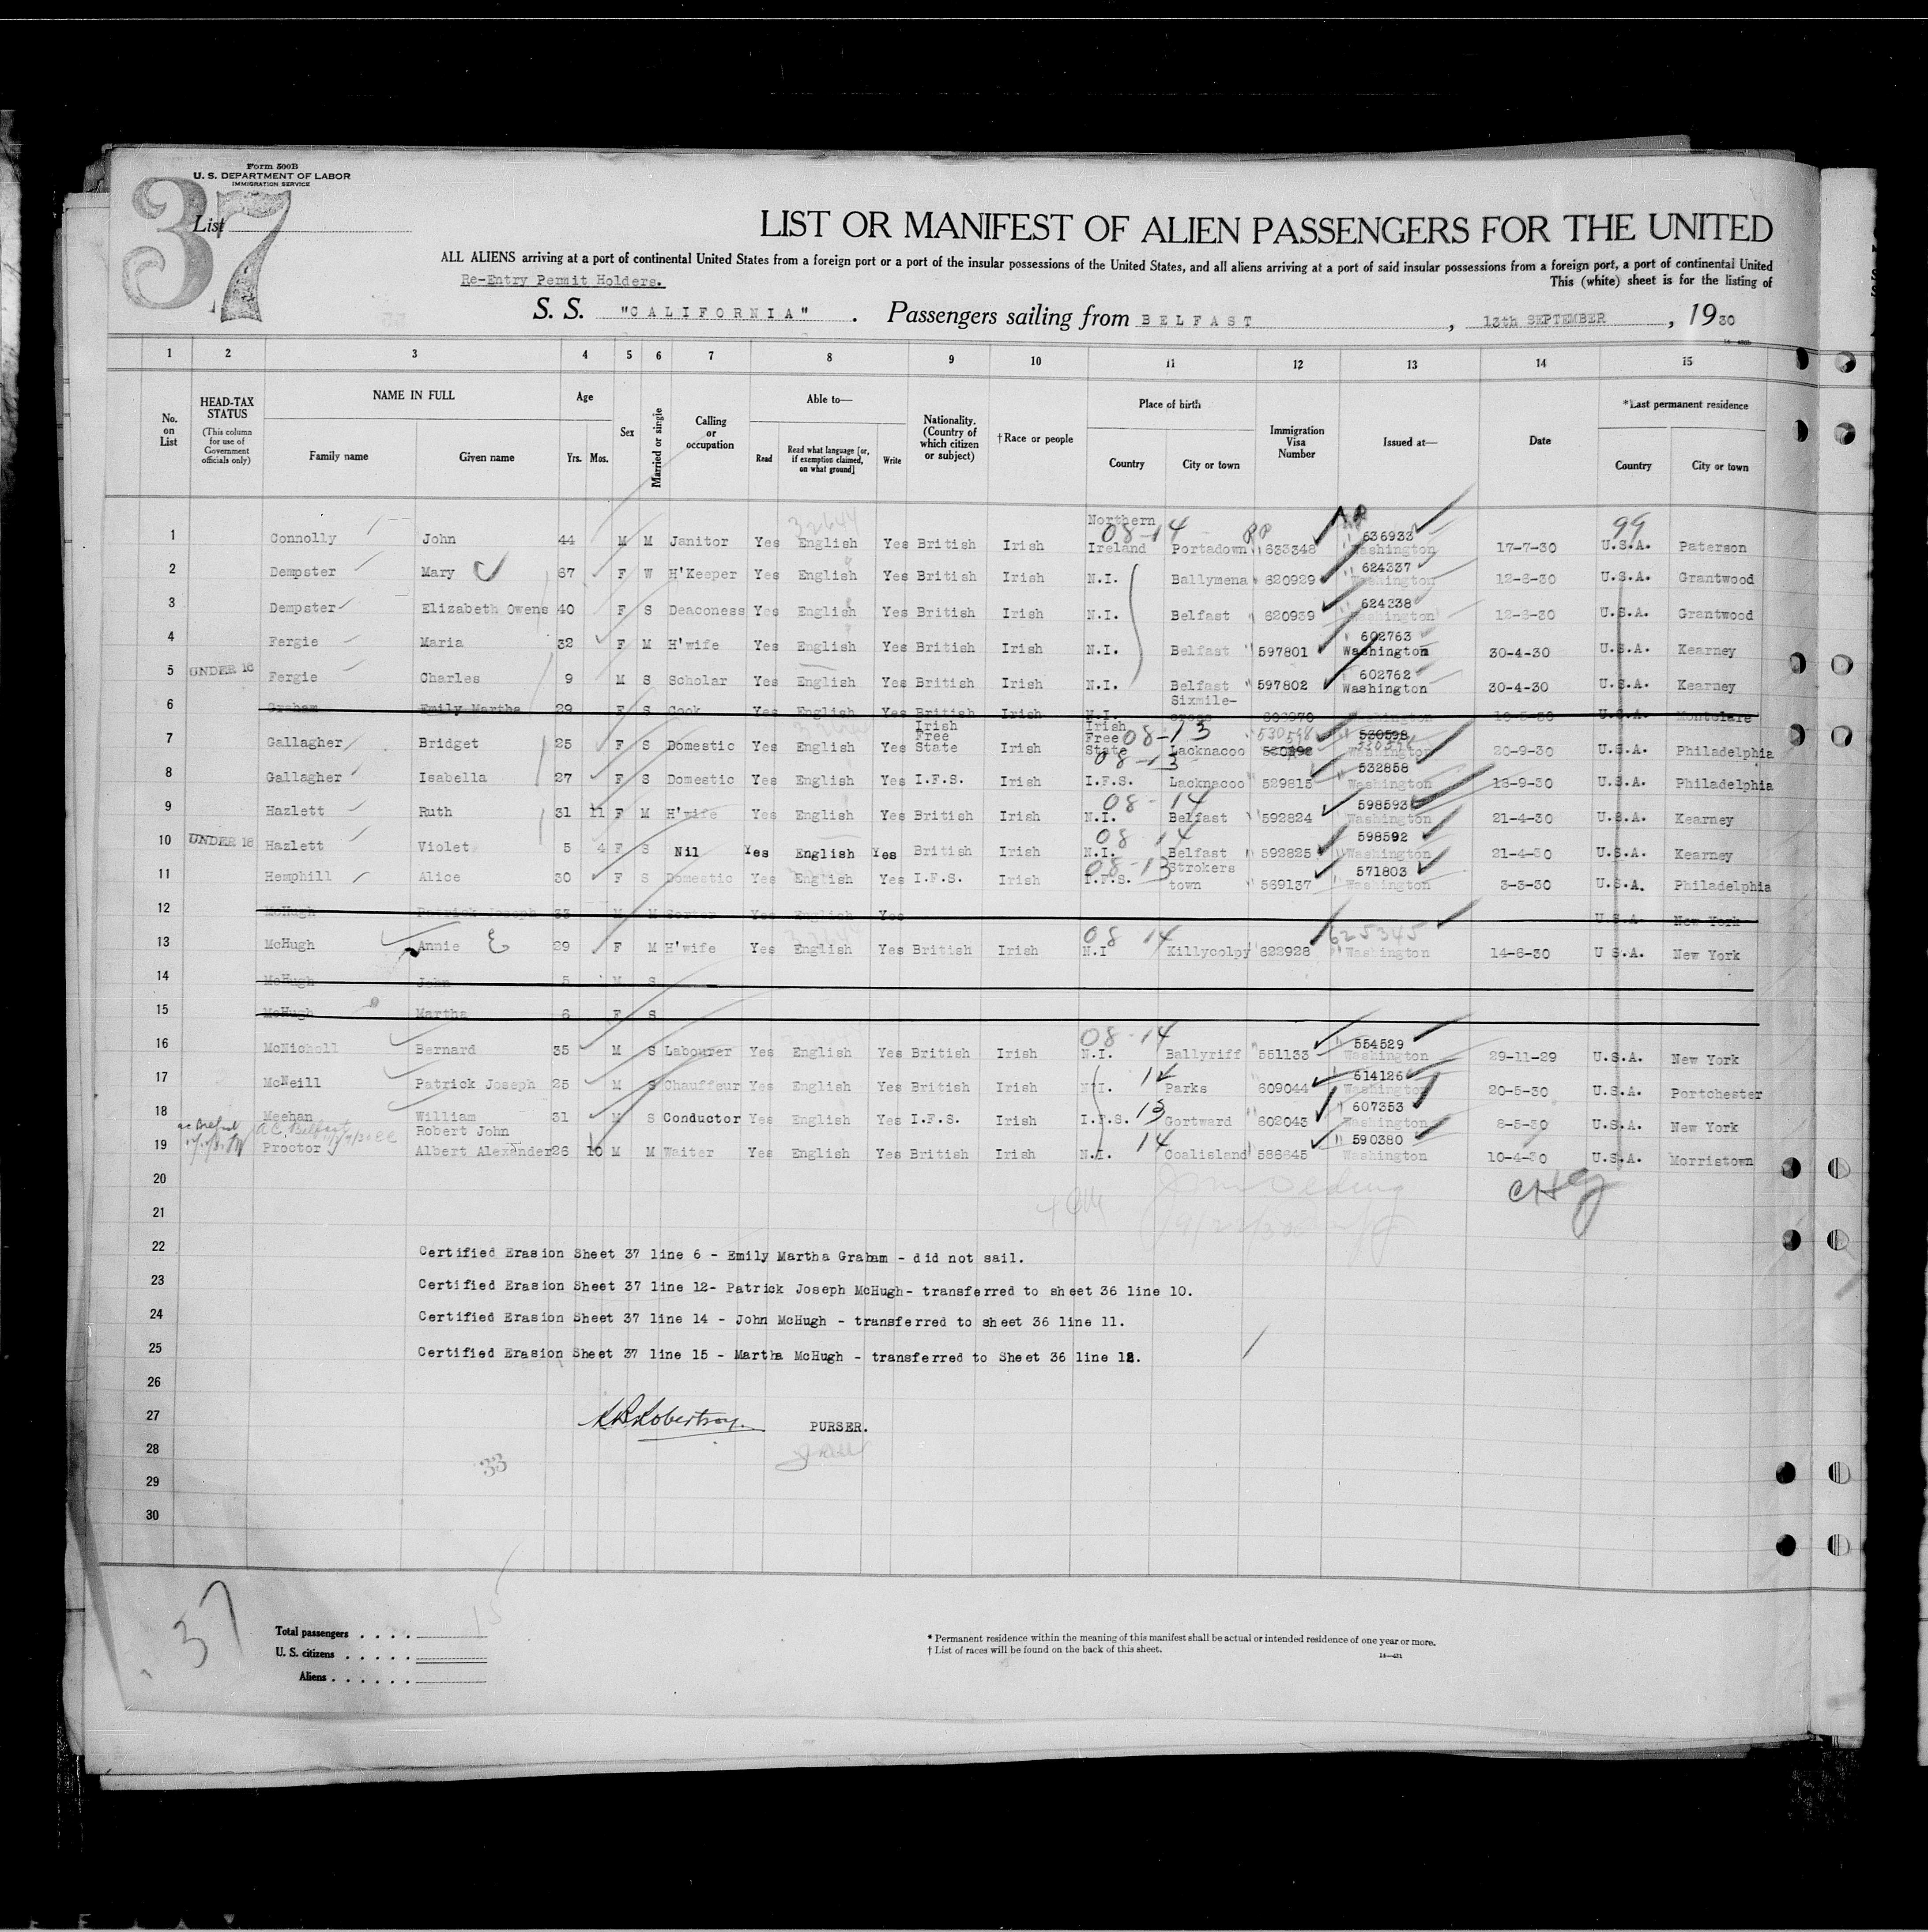 Form 500B
U. S. DEPARTMENT OF LABOR
IMMIGRATION SERVICE
37
List
LIST OR MANIFEST OF ALIEN PASSENGERS FOR THE UNITED
ALL ALIENS arriving at a port of continental United States from a foreign port or a port of the insular possessions of the United States, and all aliens arriving at a port of said insular possessions from a foreign port, a port of continental United
Re-Entry Permit Holders.
This (white) sheet is for the listing of
S. S. "CALIFORNIA". Passengers sailing from BELFAST, 13th SEPTEMBER, 1930
1 2 3 4 5 6 7 8 9 10 11 12 13 14 15
No. on List
HEAD-TAX STATUS (This column for use of Government officials only)
NAME IN FULL Family name Given name
Age Yrs. Mos.
Sex
Married or single
Calling or occupation
Able to— Read Read what language [or, if exemption claimed, on what ground] Write
Nationality. (Country of which citizen or subject)
†Race or people
Place of birth Country City or town
Immigration Visa Number
Issued at—
Date
*Last permanent residence Country City or town
1 Connolly John 44 M M Janitor Yes English Yes British Irish Northern Ireland 08-14 Portadown 633348 636933 Washington 17-7-30 99 U.S.A. Paterson
2 Dempster Mary 67 F W H'Keeper Yes English Yes British Irish N.I. Ballymena 620929 624337 Washington 12-6-30 U.S.A. Grantwood
3 Dempster Elizabeth Owens 40 F S Deaconess Yes English Yes British Irish N.I. Belfast 620939 624338 Washington 12-6-30 U.S.A. Grantwood
4 Fergie Maria 32 F M H'wife Yes English Yes British Irish N.I. Belfast 597801 602763 Washington 30-4-30 U.S.A. Kearney
5 UNDER 16 Fergie Charles 9 M S Scholar Yes English Yes British Irish N.I. Belfast 597802 602762 Washington 30-4-30 U.S.A. Kearney
6 Graham Emily Martha 29 F S Cook Yes English Yes British Irish N.I. Sixmile-cross Washington U.S.A. Montclare
7 Gallagher Bridget 25 F S Domestic Yes English Yes Irish Free State Irish Irish Free State 08-13 Lacknacoo 530598 Washington 20-9-30 U.S.A. Philadelphia
8 Gallagher Isabella 27 F S Domestic Yes English Yes I.F.S. Irish I.F.S. 08-13 Lacknacoo 529815 532858 Washington U.S.A. Philadelphia
9 Hazlett Ruth 31 11 F M H'wife Yes English Yes British Irish N.I. 08-14 Belfast 592824 598593 Washington 21-4-30 U.S.A. Kearney
10 UNDER 16 Hazlett Violet 5 4 F S Nil Yes English Yes British Irish N.I. 08 14 Belfast 592825 598592 Washington 21-4-30 U.S.A. Kearney
11 Hemphill Alice 30 F S Domestic Yes English Yes I.F.S. Irish I.F.S. 08-13 Strokestown 569137 571803 Washington 3-3-30 U.S.A. Philadelphia
12 McHugh Patrick Joseph 33 M M Yes English Yes U.S.A. New York
13 McHugh Annie E 29 F M H'wife Yes English Yes British Irish N.I 08 14 Killycolpy 622928 625345 Washington 14-6-30 U S.A. New York
14 McHugh John 5 M S
15 McHugh Martha 6 F S
16 McNicholl Bernard 35 M S Labourer Yes English Yes British Irish N.I. 08-14 Ballyriff 551133 554529 Washington 29-11-29 U.S.A. New York
17 McNeill Patrick Joseph 25 M S Chauffeur Yes English Yes British Irish N.I. 14 Parks 609044 614126 Washington 20-5-30 U.S.A. Portchester
18 Meehan William 31 M S Conductor Yes English Yes I.F.S. Irish I.F.S. 13 Gortward 602043 607353 Washington 8-5-30 U.S.A. New York
19 Proctor Robert John Albert Alexander 26 10 M M Waiter Yes English Yes British Irish N.I. 14 Coalisland 586645 590380 Washington 10-4-30 U.S.A. Morristown
20
21
22 Certified Erasion Sheet 37 line 6 - Emily Martha Graham - did not sail.
23 Certified Erasion Sheet 37 line 12- Patrick Joseph McHugh- transferred to sheet 36 line 10.
24 Certified Erasion Sheet 37 line 14 - John McHugh - transferred to sheet 36 line 11.
25 Certified Erasion Sheet 37 line 15 - Martha McHugh - transferred to Sheet 36 line 12.
26
27 Robertson. PURSER.
28
29
30
33
37
Total passengers . . . . 15
U. S. citizens . . . . .
Aliens . . . . . .
* Permanent residence within the meaning of this manifest shall be actual or intended residence of one year or more.
† List of races will be found on the back of this sheet.